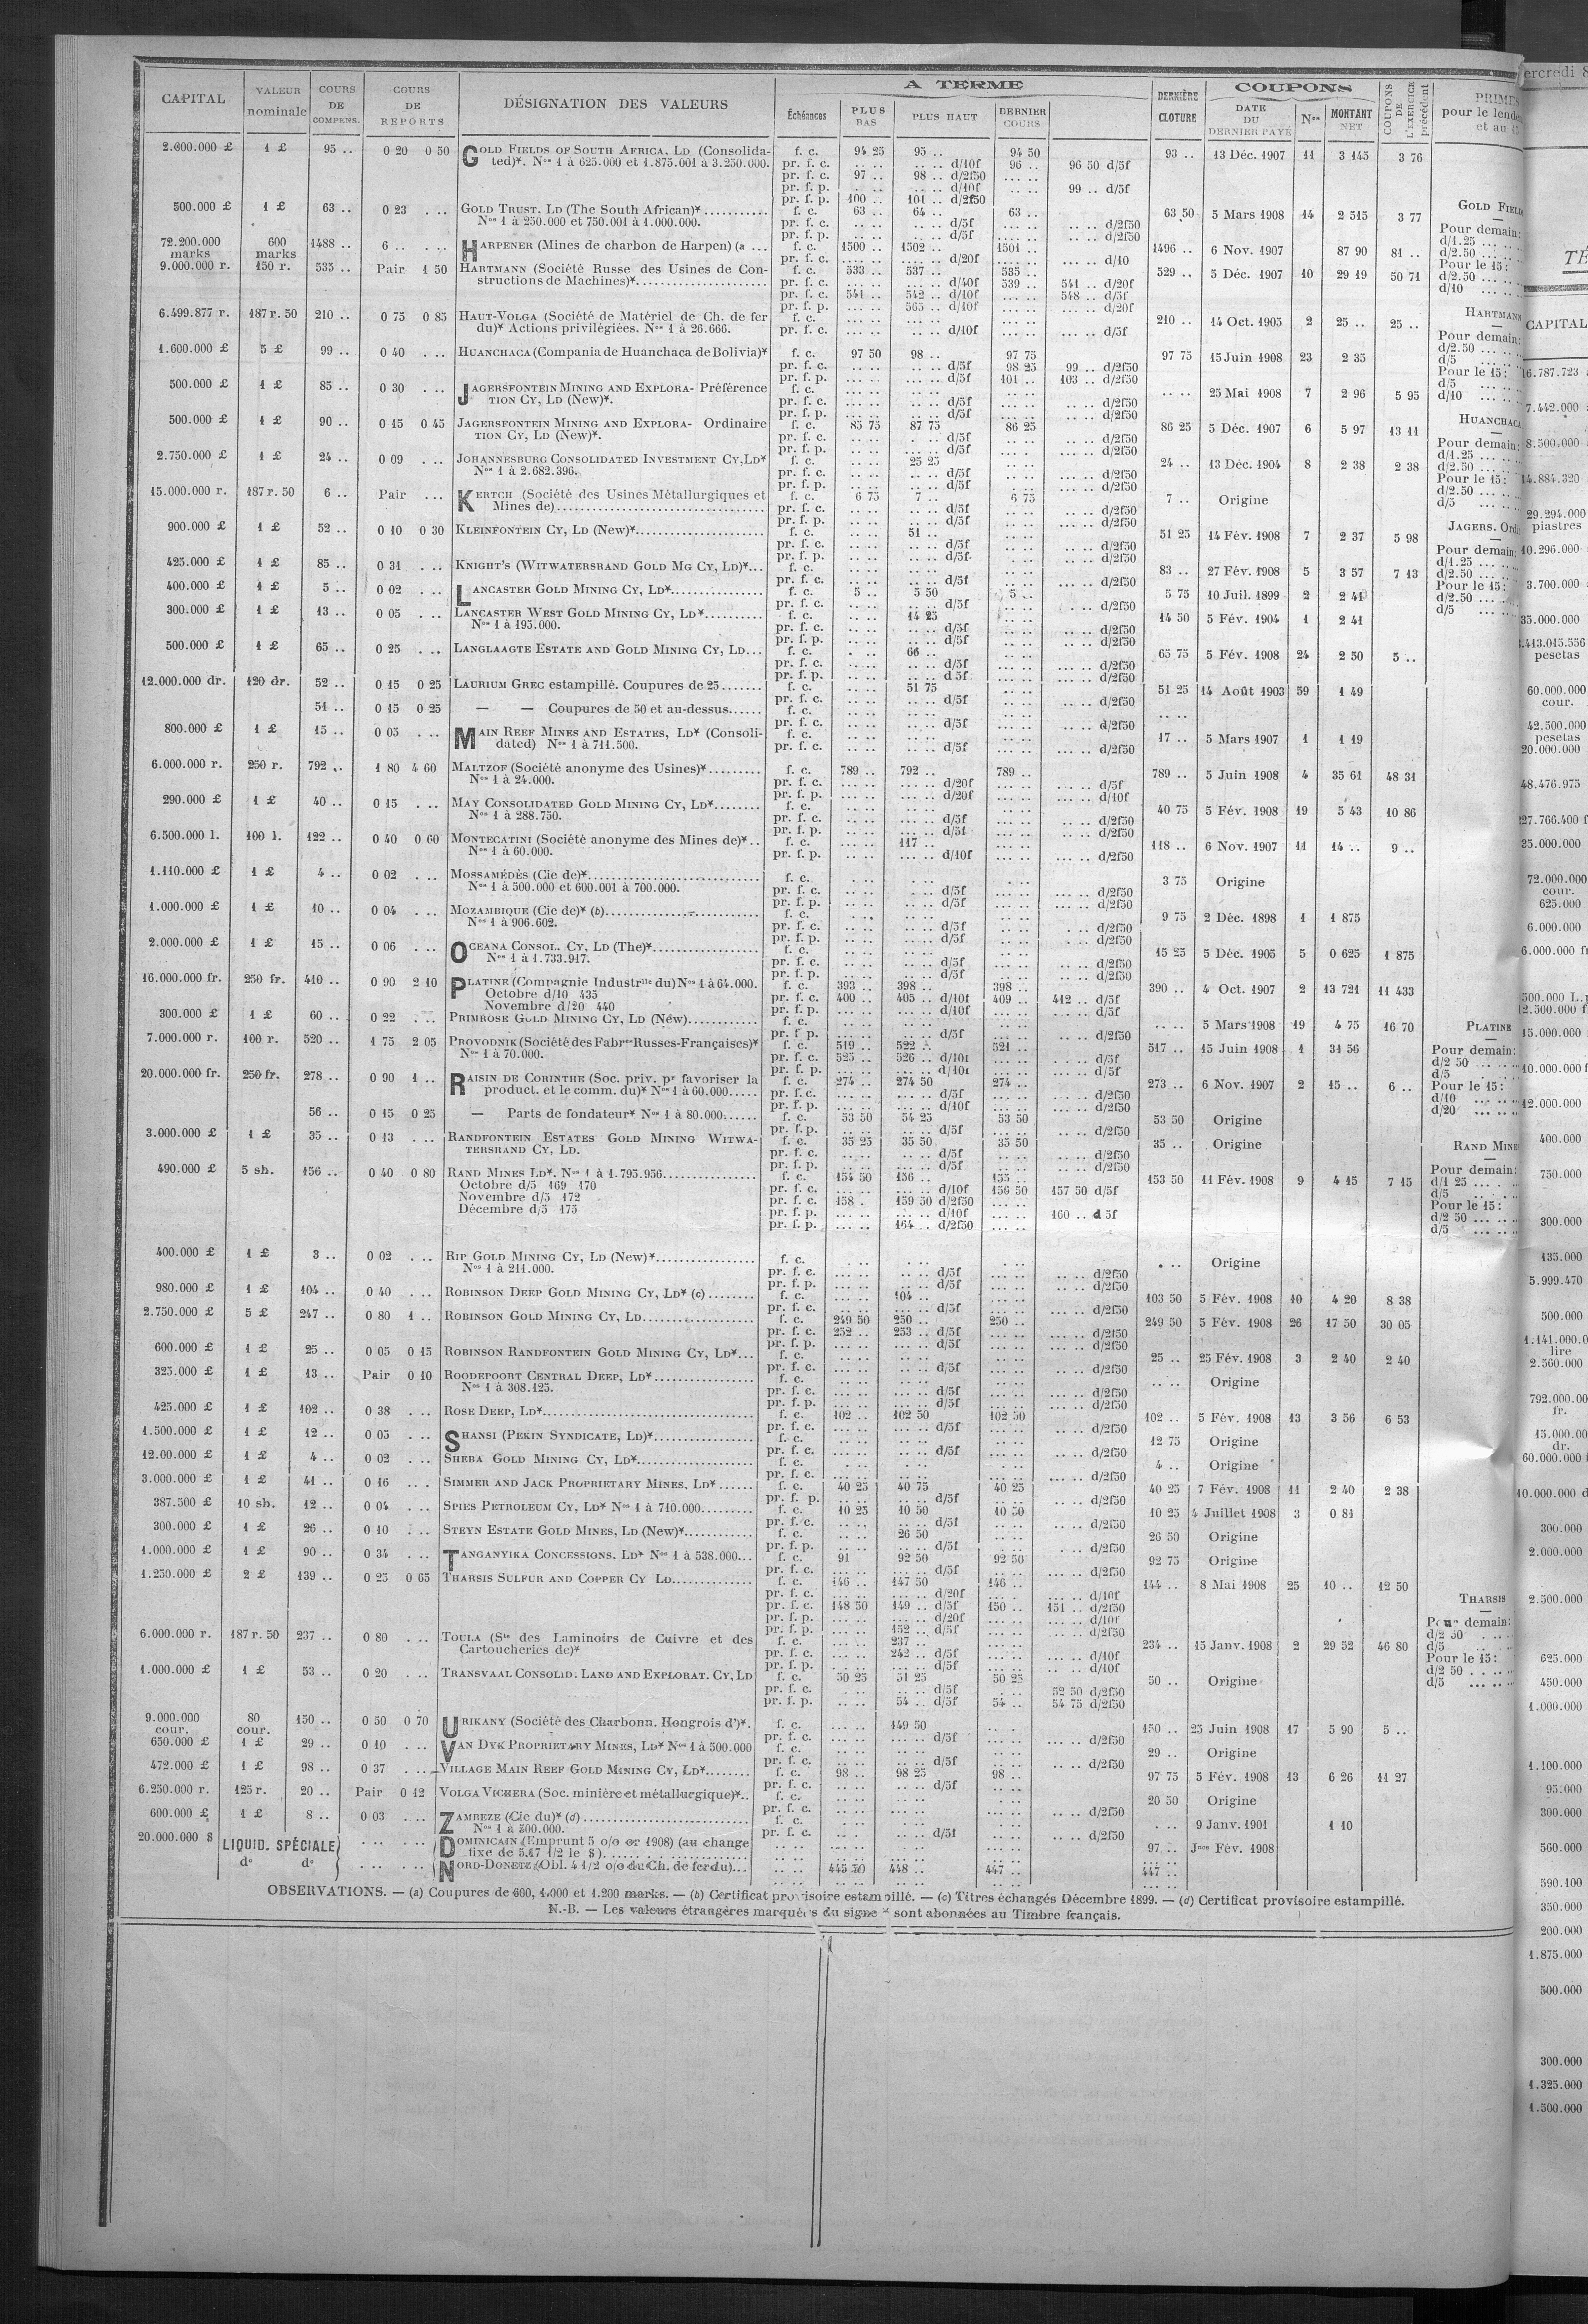 CAPITAL VALEUR nominale COURS DE COMPENS. COURS DE REPORTS DÉSIGNATION DES VALEURS A TERME Échéances PLUS BAS PLUS HAUT DERNIER COURS DERNIÈRE CLOTURE COUPONS DATE DU DERNIER PAYÉ Nos MONTANT NET COUPONS DE L'EXERCICE précédent
2.600.000 £ 1 £ 95 .. 0 20 0 50 GOLD FIELDS OF SOUTH AFRICA, LD (Consolida- f. c. 94 25 95 .. 94 50 93 .. 13 Déc. 1907 11 3 145 3 76
ted)*. Nos 1 à 625.000 et 1.875.001 à 3.250.000. pr. f. c. .. .. d/10f 96 .. 96 50 d/5f
pr. f. c. 97 .. 98 .. d/2f50
pr. f. p. .. .. d/10f 99 .. d/5f
pr. f. p. 100 .. 101 .. d/2f50
500.000 £ 1 £ 63 .. 0 23 . .. GOLD TRUST. LD (The South African)* f. c. 63 .. 64 .. 63 .. 63 50 5 Mars 1908 14 2 515 3 77
Nos 1 à 250.000 et 750.001 à 1.000.000. pr. f. c. .. .. d/5f .. .. d/2f50
pr. f. p. .. .. d/5f .. .. d/2f50
72.200.000 marks 600 marks 1488 .. 6 .. . .. HARPENER (Mines de charbon de Harpen) (a ... f. c. 1500 .. 1502 .. 1501 .. 1496 .. 6 Nov. 1907 87 90 81 ..
pr. f. c. .... .. d/20f ... .. d/10
9.000.000 r. 150 r. 535 .. Pair 1 50 HARTMANN (Société Russe des Usines de Con- f. c. 533 .. 537 .. 535 .. 529 .. 5 Déc. 1907 10 29 19 50 71
structions de Machines)* pr. f. c. ... .. d/40f 539 .. 541 .. d/20f
pr. f. c. 541 .. 542 .. d/10f 548 .. d/5f
pr. f. p. 565 .. d/40f .. .. d/20f
6.499.877 r. 187 r. 50 210 .. 0 75 0 85 HAUT-VOLGA (Société de Matériel de Ch. de fer f. c. 210 .. 14 Oct. 1905 2 25 .. 25 ..
du)* Actions privilégiées. Nos 1 à 26.666. pr. f. c. ... .. d/10f ... .. d/5f
1.600.000 £ 5 £ 99 .. 0 40 . .. HUANCHACA (Compania de Huanchaca de Bolivia)* f. c. 97 50 98 .. 97 75 97 75 15 Juin 1908 23 2 35
pr. f. c. .. .. d/5f 98 25 99 .. d/2f50
pr. f. p. ... .. d/5f 101 .. 103 .. d/2f50
500.000 £ 1 £ 85 .. 0 30 . .. JAGERSFONTEIN MINING AND EXPLORA- Préférence f. c. .. .. 25 Mai 1908 7 2 96 5 95
TION CY, LD (New)*. pr. f. c. .. .. d/5f .. .. d/2f50
pr. f. p. .. .. d/5f .. .. d/2f50
500.000 £ 1 £ 90 .. 0 15 0 45 JAGERSFONTEIN MINING AND EXPLORA- Ordinaire f. c. 85 75 87 75 86 25 86 25 5 Déc. 1907 6 5 97 13 11
TION CY, LD (New)*. pr. f. c. . .. d/5f .. .. d/2f50
pr. f. p. .. .. d/5f .. .. d/2f50
2.750.000 £ 1 £ 24 .. 0 09 . .. JOHANNESBURG CONSOLIDATED INVESTMENT CY, LD* f. c. 25 25 24 .. 13 Déc. 1904 8 2 38 2 38
Nos 1 à 2.682.396. pr. f. c. .. .. d/5f .. .. d/2f50
pr. f. p. .. .. d/5f .. .. d/2f50
15.000.000 r. 187 r. 50 6 .. Pair . .. KERTCH (Société des Usines Métallurgiques et f. c. 6 75 7 .. 6 75 7 .. Origine
Mines de) pr. f. c. .. .. d/5f ... .. d/2f50
pr. f. p. .. .. d/5f ... .. d/2f50
900.000 £ 1 £ 52 .. 0 10 0 30 KLEINFONTEIN CY, LD (New)* f. c. 51 .. 51 25 14 Fév. 1908 7 2 37 5 98
pr. f. c. .. .. d/5f .. .. d/2f50
pr. f. p. .. .. d/5f .. .. d/2f50
425.000 £ 1 £ 85 .. 0 31 . .. KNIGHT'S (WITWATERSRAND GOLD MG CY, LD)* f. c. 83 .. 27 Fév. 1908 5 3 57 7 13
pr. f. c. .. .. d/5f .. .. d/2f50
400.000 £ 1 £ 5 .. 0 02 . .. LANCASTER GOLD MINING CY, LD* f. c. 5 .. 5 50 5 .. 5 75 10 Juil. 1899 2 2 41
pr. f. c. .. .. d/5f . .. d/2f50
300.000 £ 1 £ 13 .. 0 05 . .. LANCASTER WEST GOLD MINING CY, LD* f. c. 14 25 14 50 5 Fév. 1904 1 2 41
Nos 1 à 195.000. pr. f. c. .. .. d/5f ... .. d/2f50
pr. f. p. .. .. d/5f ... .. d/2f50
500.000 £ 1 £ 65 .. 0 25 . .. LANGLAAGTE ESTATE AND GOLD MINING CY, LD... f. c. 66 .. 65 75 5 Fév. 1908 24 2 50 5 ..
pr. f. c. .. .. d/5f .. .. d/2f50
pr. f. p. .. .. d 5f .. .. d/2f50
12.000.000 dr. 120 dr. 52 .. 0 15 0 25 LAURIUM GREC estampillé. Coupures de 25 f. c. 51 75 51 25 14 Août 1903 59 1 49
pr. f. c. .. .. d/5f .. .. d/2f50
51 .. 0 15 0 25 — — Coupures de 50 et au-dessus f. c. .. ..
pr. f. c. .. .. d/5f .. .. d/2f50
800.000 £ 1 £ 15 .. 0 05 . .. MAIN REEF MINES AND ESTATES, LD* (Consoli- f. c. 17 .. 5 Mars 1907 1 1 19
dated) Nos 1 à 711.500. pr. f. c. .. .. d/5f ... .. d/2f50
6.000.000 r. 250 r. 792 .. 1 80 4 60 MALTZOF (Société anonyme des Usines)* f. c. 789 .. 792 .. 789 .. 789 .. 5 Juin 1908 4 35 61 48 31
Nos 1 à 24.000. pr. f. c. ... .. d/20f ... .. d/5f
pr. f. p. ... .. d/20f ... .. d/10f
290.000 £ 1 £ 40 .. 0 15 . .. MAY CONSOLIDATED GOLD MINING CY, LD* f. c. 40 75 5 Fév. 1908 19 5 43 10 86
Nos 1 à 288.750. pr. f. c. ... .. d/5f .. .. d/2f50
pr. f. p. ... .. d/5f .. .. d/2f50
6.500.000 l. 100 l. 122 .. 0 40 0 60 MONTECATINI (Société anonyme des Mines de)* f. c. 117 .. 118 .. 6 Nov. 1907 11 14 .. 9 ..
Nos 1 à 60.000. pr. f. p. ... .. d/10f ... .. d/2f50
1.110.000 £ 1 £ 4 .. 0 02 . .. MOSSAMÉDÈS (Cie de)* f. c. 3 75 Origine
Nos 1 à 500.000 et 600.001 à 700.000. pr. f. c. . .. d/5f ... .. d/2f50
pr. f. p. .. .. d/5f ... .. d/2f50
1.000.000 £ 1 £ 10 .. 0 04 . .. MOZAMBIQUE (Cie de)* (b) f. c. 9 75 2 Déc. 1898 1 1 875
Nos 1 à 906.602. pr. f. c. .. .. d/5f . .. d/2f50
pr. f. p. .. .. d/5f .. .. d/2f50
2.000.000 £ 1 £ 15 .. 0 06 . .. OCEANA CONSOL. CY, LD (The)* f. c. 15 25 5 Déc. 1905 5 0 625 1 875
Nos 1 à 1.733.917. pr. f. c. .. .. d/5f ... .. d/2f50
pr. f. p. .. .. d/5f ... .. d/2f50
16.000.000 fr. 250 fr. 410 .. 0 90 2 10 PLATINE (Compagnie Industrlle du) Nos 1 à 64.000. f. c. 393 .. 398 .. 398 .. 390 .. 4 Oct. 1907 2 13 721 11 433
Octobre d/10 435 pr. f. c. 400 .. 405 .. d/10f 409 .. 412 .. d/5f
Novembre d/20 440 pr. f. p. ... .. d/10f ... .. d/5f
300.000 £ 1 £ 60 .. 0 22 . .. PRIMROSE GOLD MINING CY, LD (New) f. c. .. .. 5 Mars 1908 19 4 75 16 70
pr. f. p. .. .. d/5f .. .. d/2f50
7.000.000 r. 100 r. 520 .. 1 75 2 05 PROVODNIK (Société des Fabres Russes-Françaises)* f. c. 519 .. 522 .. 521 .. 517 .. 15 Juin 1908 1 31 56
Nos 1 à 70.000. pr. f. c. 525 .. 526 .. d/10f ... .. d/5f
pr. f. p. ... .. d/10f ... .. d/5f
20.000.000 fr. 250 fr. 278 .. 0 90 1 .. RAISIN DE CORINTHE (Soc. priv. pr favoriser la f. c. 274 .. 274 50 274 .. 273 .. 6 Nov. 1907 2 15 .. 6 ..
product. et le comm. du)* Nos 1 à 60.000 pr. f. c. ... .. d/5f ... .. d/2f50
pr. f. p. ... .. d/10f ... .. d/2f50
56 .. 0 15 0 25 — Parts de fondateur* Nos 1 à 80.000 f. c. 53 50 54 25 53 50 53 50 Origine
pr. f. p. .. .. d/5f .. .. d/2f50
3.000.000 £ 1 £ 35 .. 0 13 . .. RANDFONTEIN ESTATES GOLD MINING WITWA- f. c. 35 25 35 50 35 50 35 .. Origine
TERSRAND CY, LD. pr. f. c. .. .. d/5f .. .. d/2f50
pr. f. p. .. .. d/5f .. .. d/2f50
490.000 £ 5 sh. 156 .. 0 40 0 80 RAND MINES LD*. Nos 1 à 1.795.956 f. c. 154 50 156 .. 155 .. 153 50 11 Fév. 1908 9 4 15 7 15
Octobre d/5 169 170 pr. f. c. ... .. d/10f 156 50 157 50 d/5f
Novembre d/5 172 pr. f. c. 158 . 159 50 d/2f50
Décembre d/5 175 pr. f. p. ... .. d/10f 160 .. d 5f
pr. f. p. 164 .. d/2f50
400.000 £ 1 £ 3 .. 0 02 . .. RIP GOLD MINING CY, LD (New)* f. c. . .. Origine
Nos 1 à 211.000. pr. f. c. .. .. d/5f .. .. d/2f50
pr. f. p. .. .. d/5f .. .. d/2f50
980.000 £ 1 £ 104 .. 0 40 . .. ROBINSON DEEP GOLD MINING CY, LD* (c) f. c. 104 .. 103 50 5 Fév. 1908 10 4 20 8 38
pr. f. c. ... .. d/5f ... .. d/2f50
2.750.000 £ 5 £ 247 .. 0 80 1 .. ROBINSON GOLD MINING CY, LD f. c. 249 50 250 .. 250 .. 249 50 5 Fév. 1908 26 17 50 30 05
pr. f. c. 252 .. 253 .. d/5f ... .. d/2f50
pr. f. p. ... .. d/5f
600.000 £ 1 £ 25 .. 0 05 0 15 ROBINSON RANDFONTEIN GOLD MINING CY, LD* f. c. 25 .. 25 Fév. 1908 3 2 40 2 40
pr. f. c. .. .. d/5f .. .. d/2f50
325.000 £ 1 £ 13 .. Pair 0 10 ROODEPOORT CENTRAL DEEP, LD* f. c. .. .. Origine
Nos 1 à 308.125. pr. f. c. .. .. d/5f .. .. d/2f50
pr. f. p. .. .. d/5f .. .. d/2f50
425.000 £ 1 £ 102 .. 0 38 . .. ROSE DEEP, LD* f. c. 102 .. 102 50 102 50 102 .. 5 Fév. 1908 13 3 56 6 53
pr. f. c. ... .. d/5f .. .. d/2f50
1.500.000 £ 1 £ 12 .. 0 05 . .. SHANSI (PEKIN SYNDICATE, LD)* f. c. 12 75 Origine
pr. f. c. .. .. d/5f .. .. d/2f50
12.00.000 £ 1 £ 4 .. 0 02 . .. SHEBA GOLD MINING CY, LD* f. c. 4 .. Origine
pr. f. c. .. .. d/2f50
3.000.000 £ 1 £ 41 .. 0 16 .. . SIMMER AND JACK PROPRIETARY MINES, LD* f. c. 40 25 40 75 40 25 40 25 7 Fév. 1908 11 2 40 2 38
pr. f. p. .. .. d/5f .. .. d/2f50
387.500 £ 10 sh. 12 .. 0 04 . .. SPIES PETROLEUM CY, LD* Nos 1 à 710.000 f. c. 10 25 10 50 10 50 10 25 4 Juillet 1908 3 0 81
pr. f. c. .. .. d/5f .. .. d/2f50
300.000 £ 1 £ 26 .. 0 10 . .. STEYN ESTATE GOLD MINES, LD (New)* f. c. 26 50 26 50 Origine
pr. f. p. .. .. d/5f . .. d/2f50
1.000.000 £ 1 £ 90 .. 0 34 . .. TANGANYIKA CONCESSIONS. LD* Nos 1 à 538.000 f. c. 91 92 50 92 50 92 75 Origine
pr. f. c. .. .. d/5f .. .. d/2f50
1.250.000 £ 2 £ 139 .. 0 25 0 65 THARSIS SULFUR AND COPPER CY LD f. c. 146 .. 147 50 146 .. 144 .. 8 Mai 1908 25 10 .. 12 50
pr. f. c. ... .. d/20f ... .. d/10f
pr. f. c. 148 50 149 .. d/5f 150 .. 151 .. d/2f50
pr. f. p. ... .. d/20f ... .. d/10f
pr. f. p. 152 .. d/5f ... .. d/2f50
6.000.000 r. 187 r. 50 237 .. 0 80 . .. TOULA (Sté des Laminoirs de Cuivre et des f. c. 237 .. 234 .. 15 Janv. 1908 2 29 52 46 80
Cartoucheries de)* pr. f. c. 242 .. d/5f ... .. d/10f
pr. f. p. ... .. d/5f ... .. d/10f
1.000.000 £ 1 £ 53 .. 0 20 . .. TRANSVAAL CONSOLID. LAND AND EXPLORAT. CY, LD f. c. 50 25 51 25 50 25 50 .. Origine
pr. f. c. .. .. d/5f 52 50 d/2f50
pr. f. p. .. .. 54 .. d/5f 54 .. 54 75 d/2f50
9.000.000 cour. 80 cour. 150 .. 0 50 0 70 URIKANY (Société des Charbonn. Hongrois d')*. f. c. 149 50 150 .. 25 Juin 1908 17 5 90 5 ..
pr. f. c. ... .. d/5f .. .. d/2f50
650.000 £ 1 £ 29 .. 0 10 . .. VAN DYK PROPRIETARY MINES, LD* Nos 1 à 500.000 f. c. 29 .. Origine
pr. f. c. .. .. d/5f .. .. d/2f50
472.000 £ 1 £ 98 .. 0 37 . .. VILLAGE MAIN REEF GOLD MINING CY, LD* f. c. 98 .. 98 25 98 .. 97 75 5 Fév. 1908 13 6 26 11 27
pr. f. c. .. .. d/5f
6.250.000 r. 125 r. 20 .. Pair 0 12 VOLGA VICHERA (Soc. minière et métallurgique)* 20 50 Origine
pr. f. c. .. .. d/2f50
600.000 £ 1 £ 8 .. 0 03 . .. ZAMBEZE (Cie du)* (d) f. c. . .. 9 Janv. 1901 1 10
Nos 1 à 500.000. pr. f. c. .. .. d/5f .. .. d/2f50
20.000.000 $ LIQUID. SPÉCIALE DOMINICAIN (Emprunt 5 o/o or 1908) (au change 97 .. Jces Fév. 1908
fixe de 5.47 1/2 le $)
do do NORD-DONETZ (Obl. 4 1/2 o/o du Ch. de fer du) 445 50 448 .. 447 .. 447 ..
OBSERVATIONS. — (a) Coupures de 600, 1.000 et 1.200 marks. — (b) Certificat provisoire estampillé. — (c) Titres échangés Décembre 1899. — (d) Certificat provisoire estampillé.
N.-B. — Les valeurs étrangères marquées du signe * sont abonnées au Timbre français.
PRIMES
pour le lende
et au 15
GOLD FIELD
Pour demain:
d/1.25 ... ..
d/2.50 ... ..
Pour le 15:
d/2.50 ... ..
d/10 ... ..
HARTMANN
Pour demain:
d/2.50 ... ..
d/5 ... ..
Pour le 15:
d/5 ... ..
d/10 ... ..
HUANCHACA
Pour demain:
d/1.25 ... ..
d/2.50 ... ..
Pour le 15:
d/2.50 ... ..
d/5 ... ..
JAGERS. Ordi
Pour demain:
d/1.25 ... ..
d/2.50 ... ..
Pour le 15:
d/2.50 ... ..
d/5 ... ..
PLATINE
Pour demain:
d/2 50 ... ..
d/5 ... ..
Pour le 15:
d/10 ... ..
d/20 ... ..
RAND MINE
Pour demain:
d/1 25 ... ..
d/5 ... ..
Pour le 15:
d/2 50 ... ..
d/5 ... ..
THARSIS
Pour demain:
d/2 50 ... ..
d/5 ... ..
Pour le 15:
d/2 50 ... ..
d/5 ... ..
ercredi 8
TÉ
CAPITAL
16.787.723
7.442.000
8.500.000
14.884.320
29.294.000
piastres
10.296.000
3.700.000
35.000.000
1.413.015.556
pesetas
60.000.000
cour.
42.500.000
pesetas
20.000.000
48.476.975
27.766.400 f
35.000.000
72.000.000
cour.
625.000
6.000.000
6.000.000 f
500.000 L.
12.500.000 f
15.000.000
10.000.000 f
12.000.000
400.000
750.000
300.000
135.000
5.999.470
500.000
1.141.000.0
lire
2.560.000
792.000.00
fr.
15.000.00
dr.
60.000.000
10.000.000 d
300.000
2.000.000
2.500.000
625.000
450.000
1.000.000
1.100.000
95.000
300.000
560.000
590.100
350.000
200.000
1.875.000
500.000
300.000
1.325.000
1.500.000